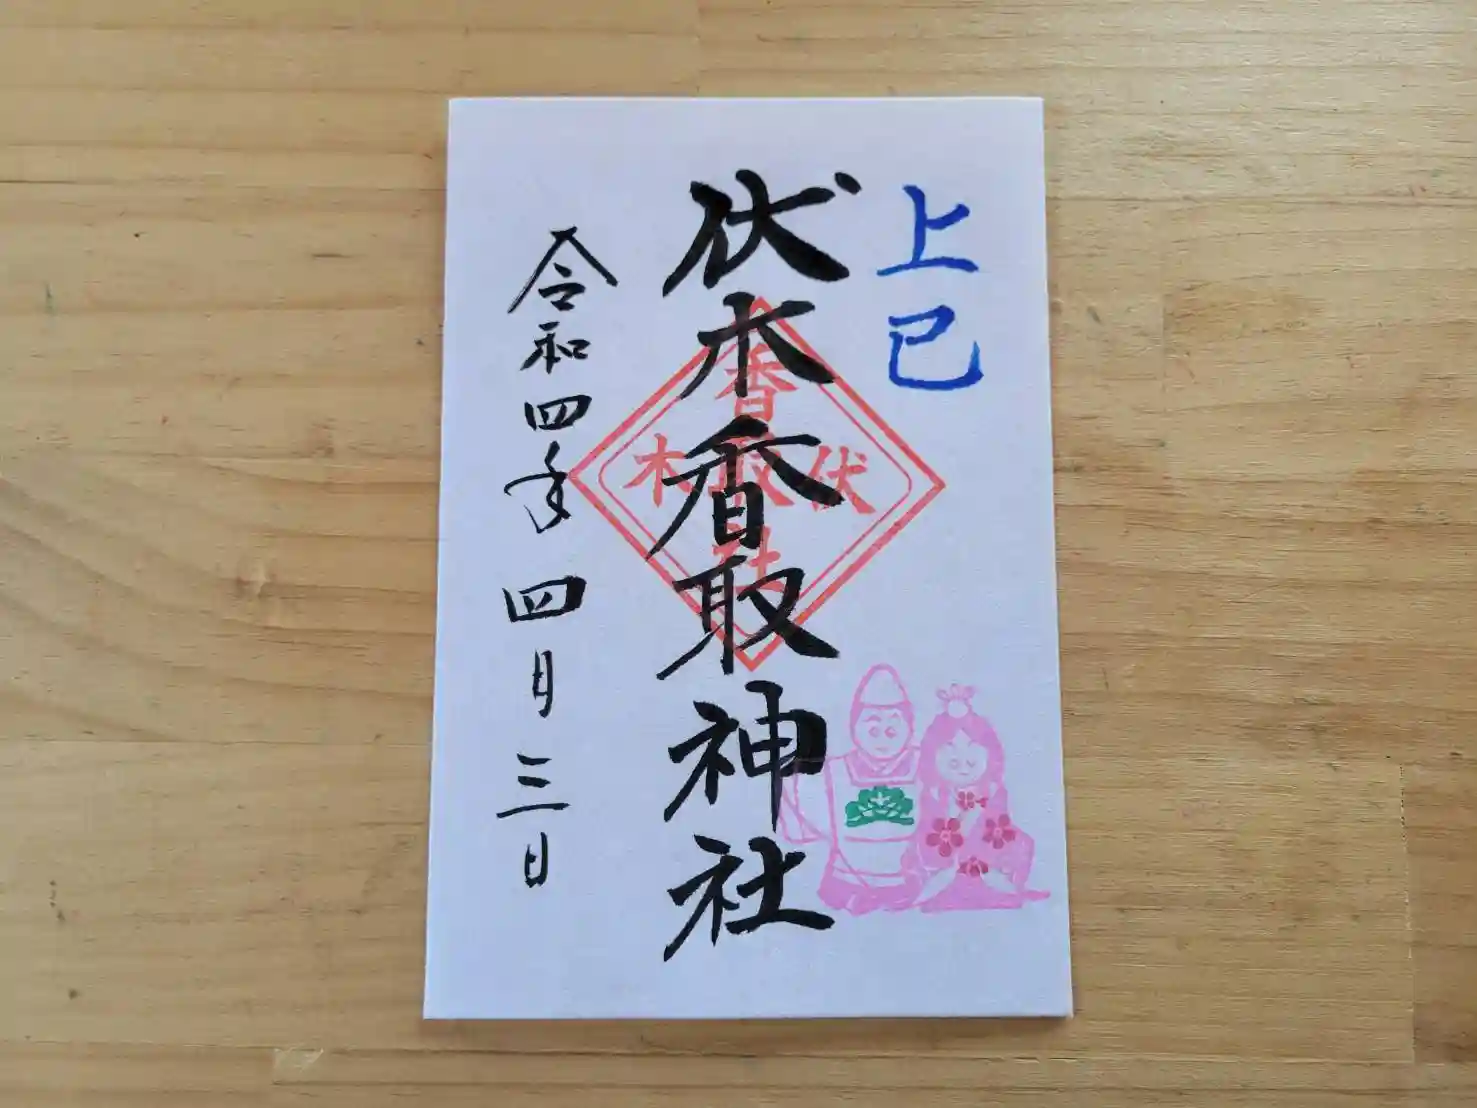 上巳
伏木香取神社
伏木
香取社
令和四年四月三日